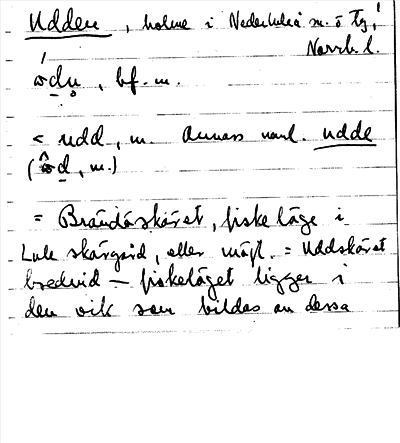 Udden, holme i Nederluleå sn. ö Tg,
Norrb. l.
ɷdn̥, bf. m.
< udd, m. Annars vanl. udde
(ɷ̂d, m.)
= Brändöskäret, fiskeläge i
Lule skärgård, eller möjl. = Uddskäret
bredvid — fiskeläget ligger i
den vik som bildas av dessa